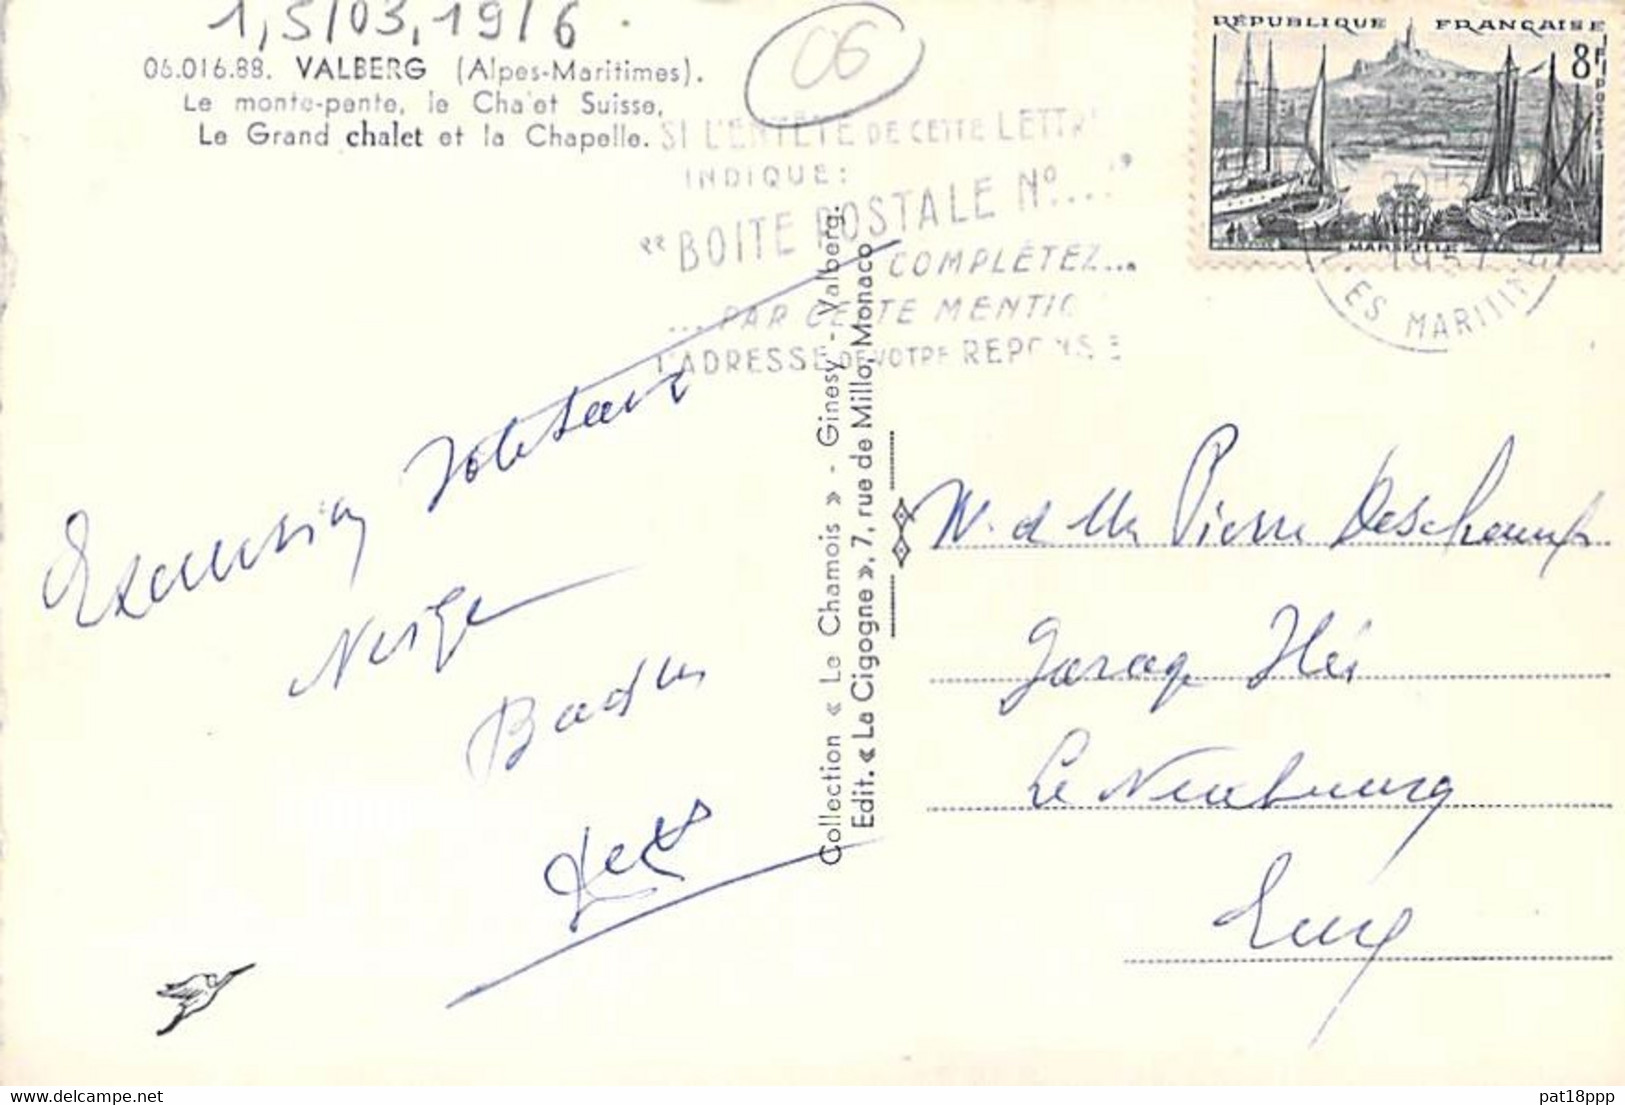 1,5/03,19/6
06
06.016.88. VALBERG (Alpes-Maritimes).
Le monte-pente, le Cha'et Suisse,
Le Grand chalet et la Chapelle.
RÉPUBLIQUE FRANÇAISE
8F
POSTES
MARSEILLE
1957
ES MARITIM
SI L'ENTÊTE DE CETTE LETTR
INDIQUE:
"BOITE POSTALE N°...."
COMPLÉTEZ...
...PAR CETTE MENTIO
L'ADRESSE DE VOTRE REPONSE
Collection « Le Chamois » - Ginesy - Valberg.
Edit. « La Cigogne », 7, rue de Millo, Monaco
Excursion
Neige
M. et Me Pierre Deschamps
Garage
Le Neubourg
Eure
pat18ppp